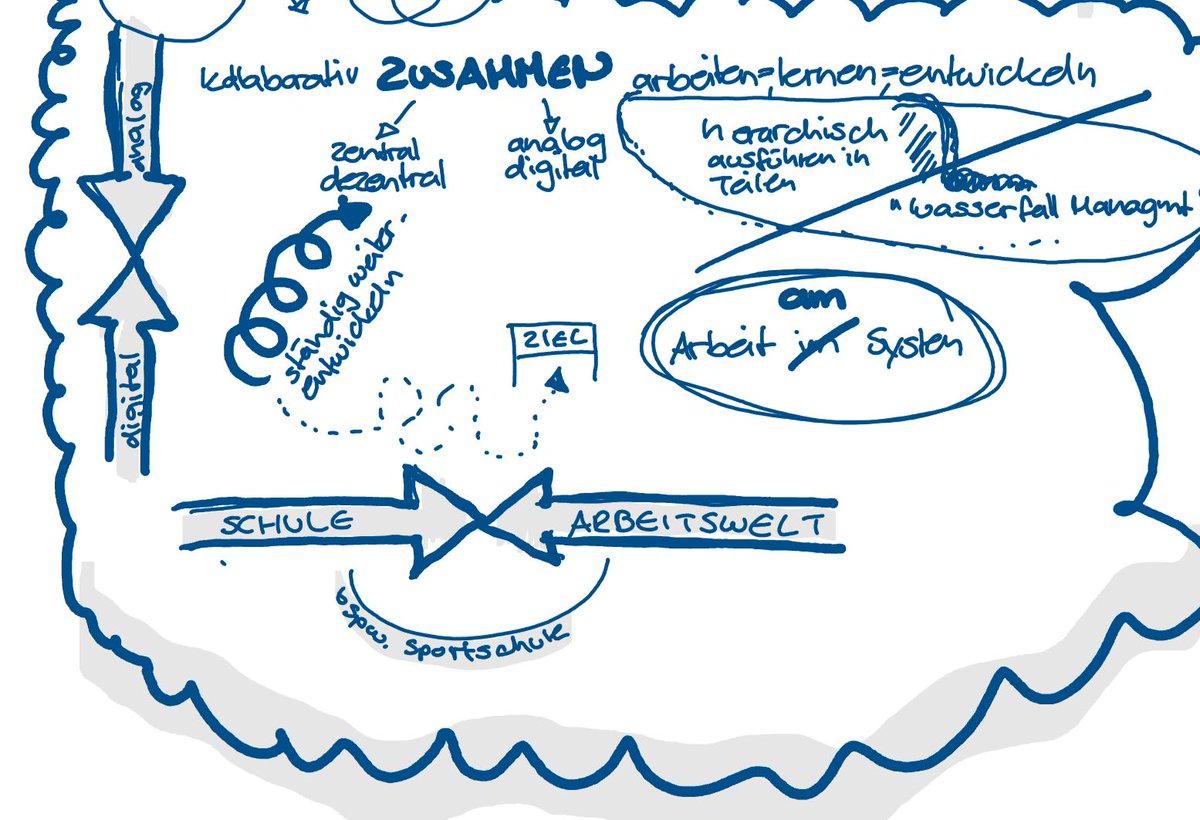 kollaborativ ZUSAMMEN arbeiten=lernen=entwickeln
analog
zentral
dezentral
analog
digital
hierarchisch
ausführen in
Teilen
"Wasserfall Managmt"
ständig weiter-
entwickeln
ZIEL
am
Arbeit im System
digital
SCHULE
ARBEITSWELT
bspw. Sportschule